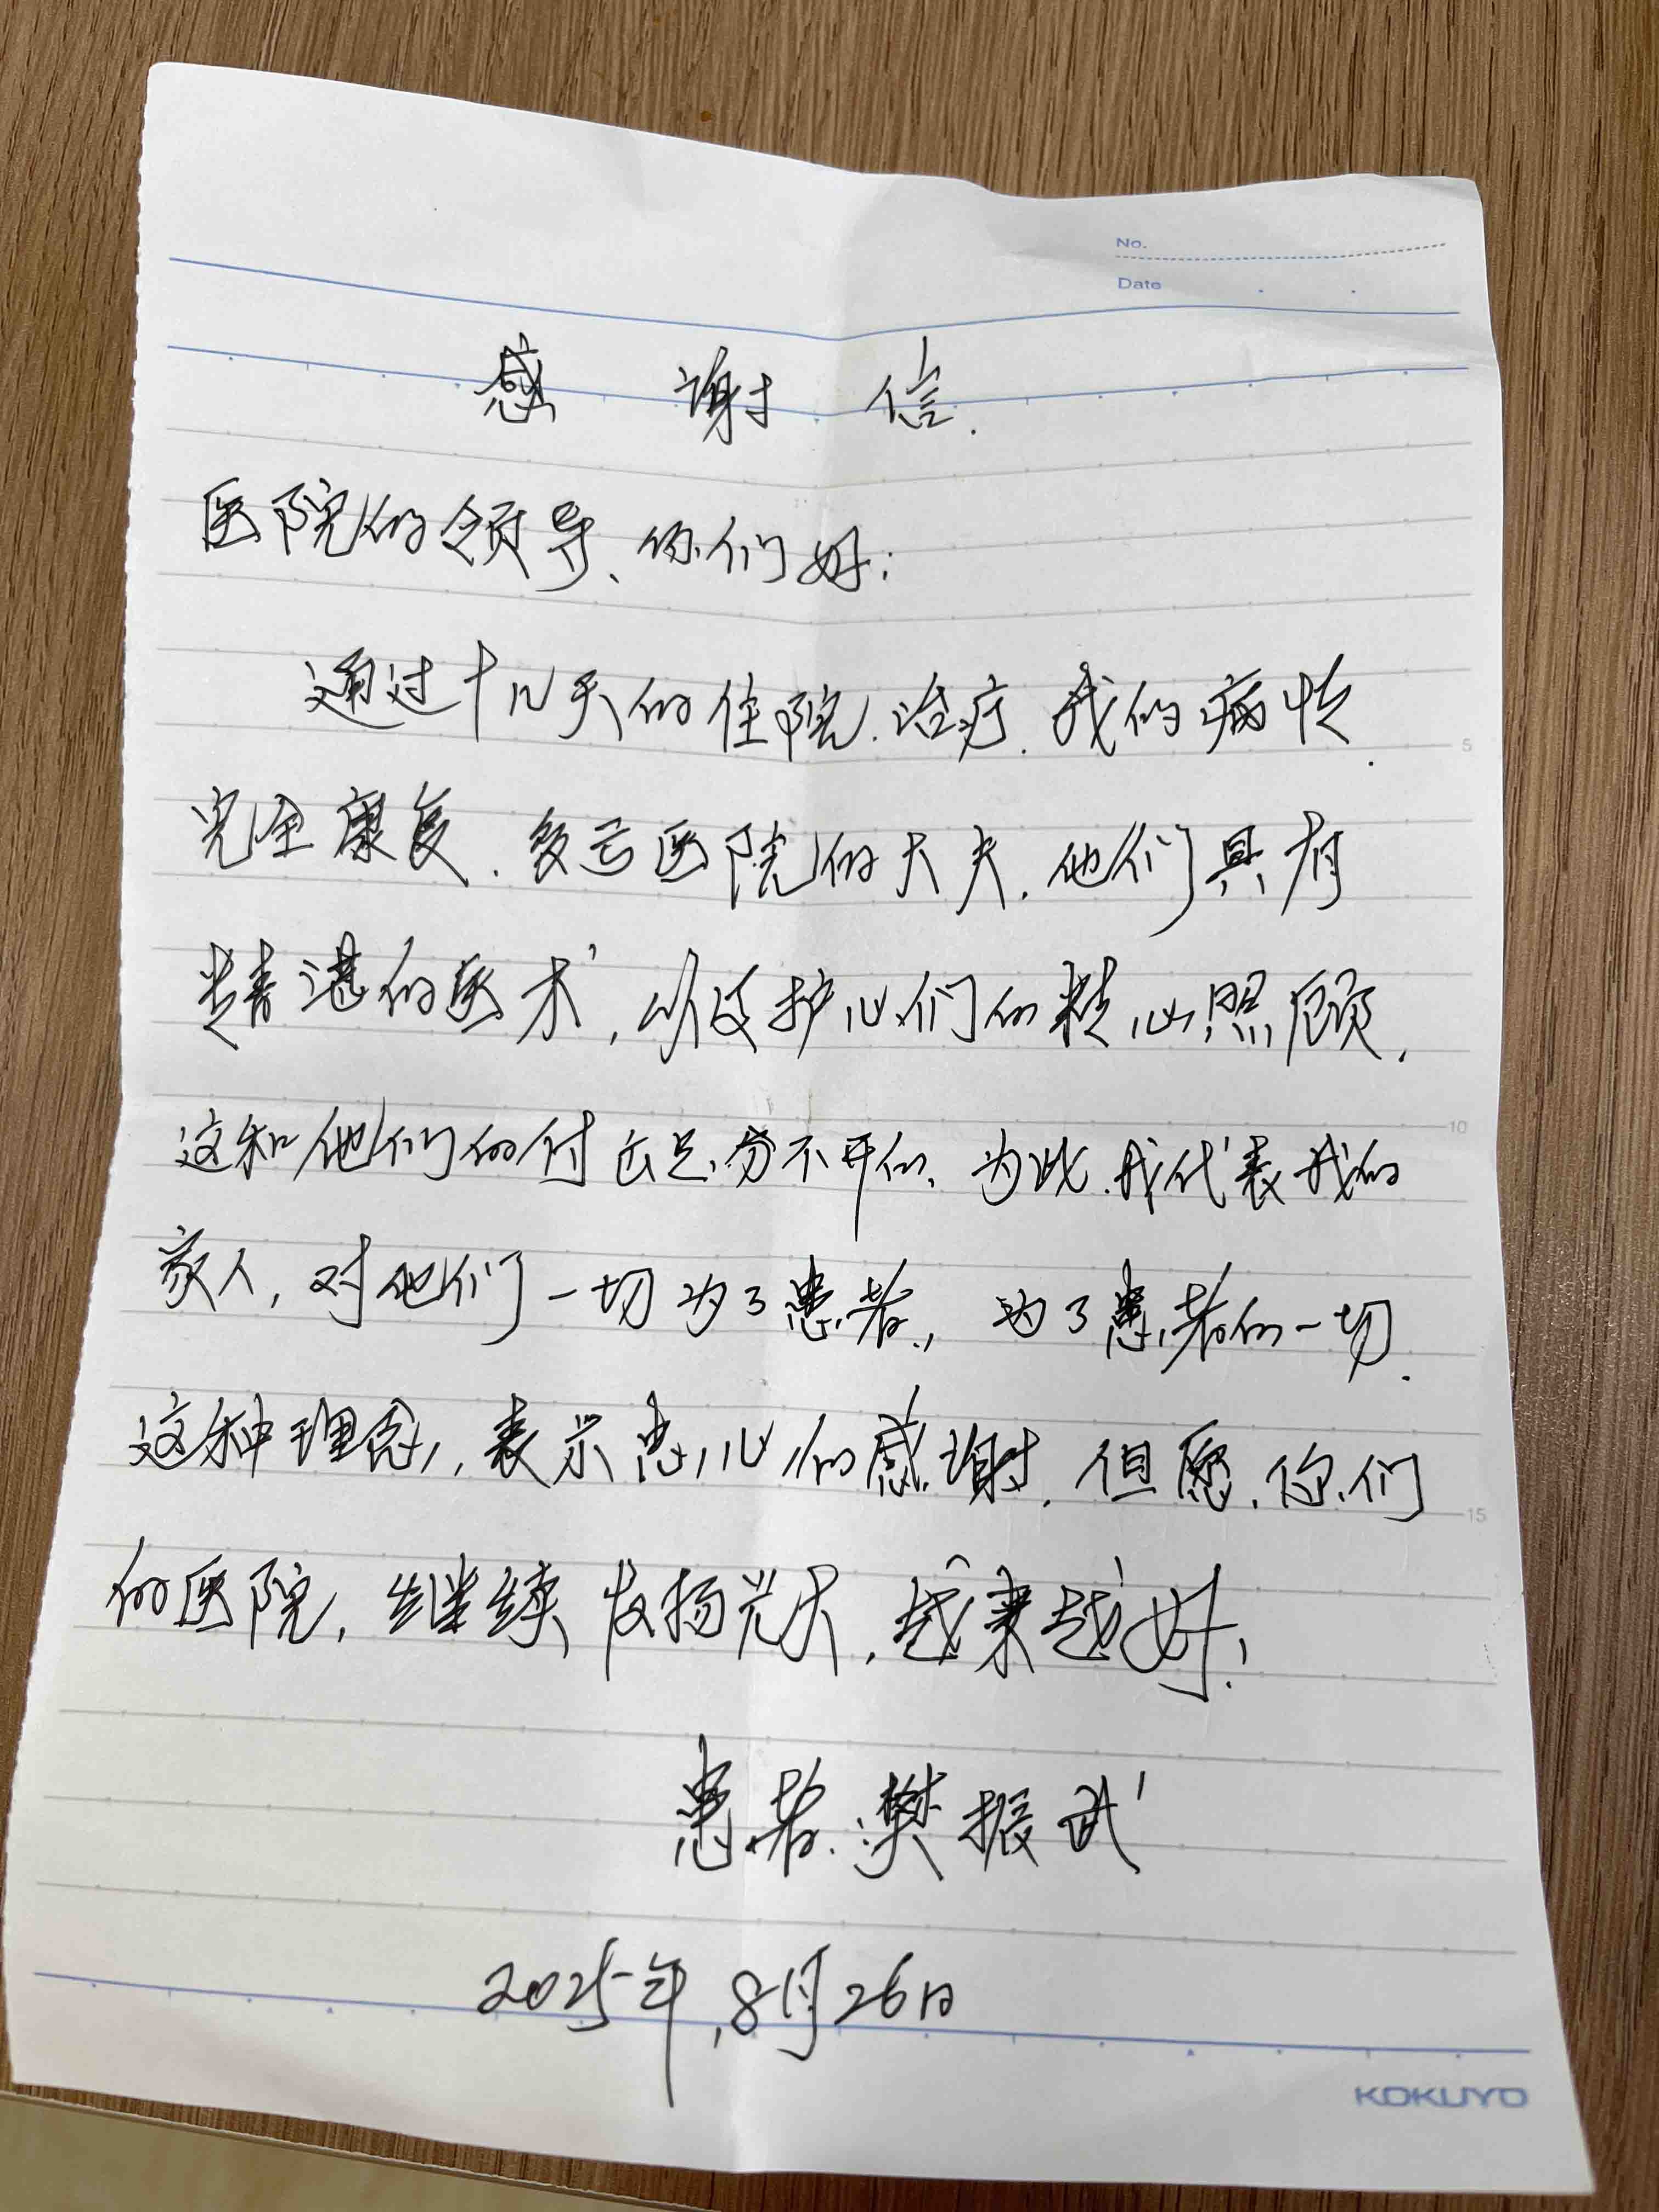 No.
Date
感谢信.
医院的领导、你们好:
通过十几天的住院.治疗.我的病情.
完全康复.多亏医院的大夫.他们具有
精湛的医术,以及护心们的精心照顾.
这和他们的付出是分不开的.为此.我代表我的
家人,对他们一切为了患者,为了患者的一切.
这种理念,表示忠心的感谢.但愿.你们
的医院,继续发扬光大,越来越好.
患者.樊振武
2025年,8月26日
5
10
15
KOKUYO